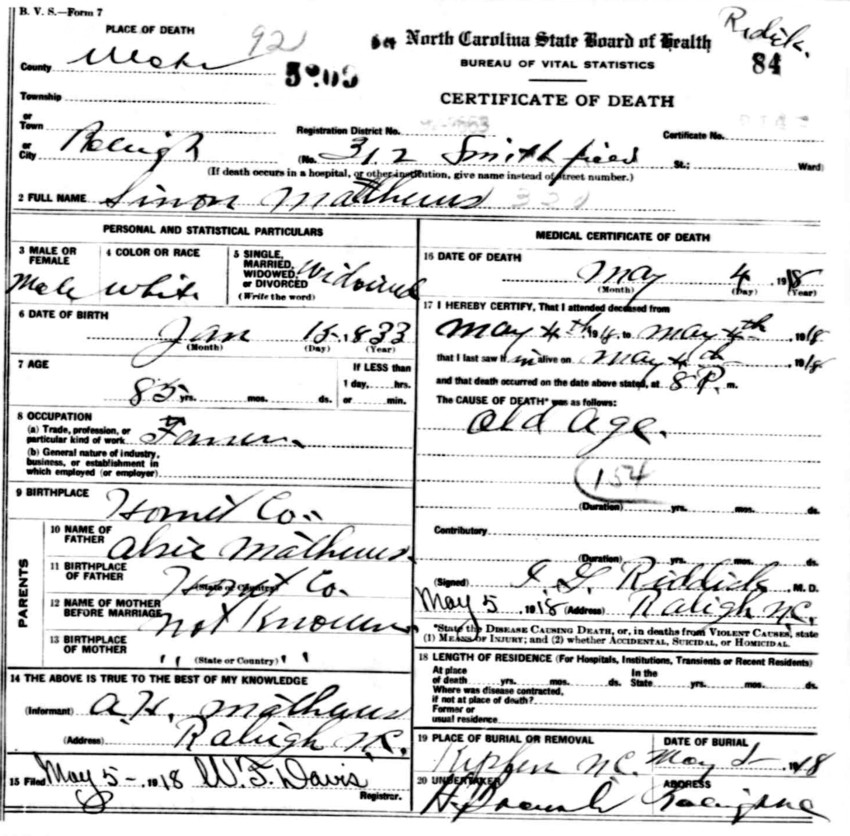 B. V. S.—Form 7
PLACE OF DEATH
92
North Carolina State Board of Health
Riddick
84
BUREAU OF VITAL STATISTICS
County
CERTIFICATE OF DEATH
Township
or
Town
Registration District No.
Certificate No.
or
City Raleigh (No. 312 Smithfield St.; Ward)
(If death occurs in a hospital, or other institution, give name instead of street number.)
2 FULL NAME Simon Mathews
PERSONAL AND STATISTICAL PARTICULARS
3 MALE OR FEMALE Male
4 COLOR OR RACE White
5 SINGLE, MARRIED, WIDOWED, or DIVORCED (Write the word) Widowed
6 DATE OF BIRTH
Jan 15, 1833
(Month) (Day) (Year)
7 AGE
85 yrs. mos. ds.
If LESS than
1 day, hrs.
or min.
8 OCCUPATION
(a) Trade, profession, or
particular kind of work Farmer
(b) General nature of industry,
business, or establishment in
which employed (or employer)
9 BIRTHPLACE Co.
PARENTS
10 NAME OF FATHER Mathews
11 BIRTHPLACE OF FATHER Co.
(State or Country)
12 NAME OF MOTHER BEFORE MARRIAGE Not Known
13 BIRTHPLACE OF MOTHER " "
(State or Country)
14 THE ABOVE IS TRUE TO THE BEST OF MY KNOWLEDGE
(Informant) A.H. Mathews
(Address) Raleigh N.C.
15 Filed May 5- 1918 W. F. Davis
Registrar.
MEDICAL CERTIFICATE OF DEATH
16 DATE OF DEATH
May 4 1918
(Month) (Day) (Year)
17 I HEREBY CERTIFY, That I attended deceased from
May 4th 1918 to May 4th, 1918
that I last saw him alive on May 4th, 1918
and that death occurred on the date above stated, at 8 P. m.
The CAUSE OF DEATH* was as follows:
Old Age.
154
(Duration) yrs. mos. ds.
Contributory
(Duration) yrs. mos. ds.
(Signed) Riddick M. D.
May 5, 1918 (Address) Raleigh N.C.
*State the DISEASE CAUSING DEATH, or, in deaths from VIOLENT CAUSES, state
(1) MEANS OF INJURY; and (2) whether ACCIDENTAL, SUICIDAL, or HOMICIDAL.
18 LENGTH OF RESIDENCE (For Hospitals, Institutions, Transients or Recent Residents)
At place of death yrs. mos. ds. In the State yrs. mos. ds.
Where was disease contracted,
if not at place of death?
Former or
usual residence
19 PLACE OF BURIAL OR REMOVAL
DATE OF BURIAL
N.C. May 5 1918
20 UNDERTAKER
ADDRESS
Raleigh NC